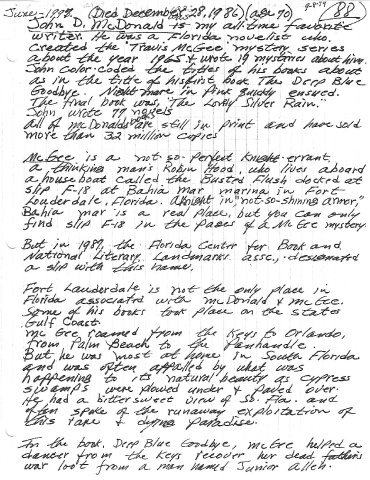 June, 1999 (Died December 28, 1986) (age 70) 9-8-99 88
John D. McDonald is my all time favorite
writer. He was a Florida novelist who
created the "Travis McGee" mystery series
about the year 1965 & wrote 19 mysteries about him.
John color-coded the titles of his books about
as in the title of his first book The Deep Blue
Goodbye. Nightmare in Pink quickly ensued.
The final book was, "The Lonely Silver Rain."
John wrote 77 novels
all of McDonalds are still in print and have sold
more than 32 million copies
McGee is a not-so-perfect knight-errant,
a thinking mans Robin Hood, who lives aboard
a houseboat called the Busted Flush docked at
slip F-18 at Bahia mar marina in Fort
Lauderdale, Florida. A knight in "not-so-shining armor,"
Bahia mar is a real place, but you can only
find slip F-18 in the pages of a McGee mystery.
But in 1987, the Florida Center for Book and
National Literary Landmarks assc., designated
a slip with this name.
Fort Lauderdale is not the only place in
Florida associated with McDonald & McGee.
Some of his books took place on the states
Gulf Coast.
McGee roamed from the Keys to Orlando,
from Palm Beach to the Panhandle.
But he was most at home in South Florida
and was often appalled by what was
happening to its natural beauty as cypress
swamps were plowed under & paved over.
He had a bittersweet view of So. Fla. and
often spoke of the runaway exploitation of
this rare & dying paradise.
In the book, Deep Blue Goodbye, McGee helped a
dancer from the Keys recover her dead fathers
war loot from a man named Junior Allen.